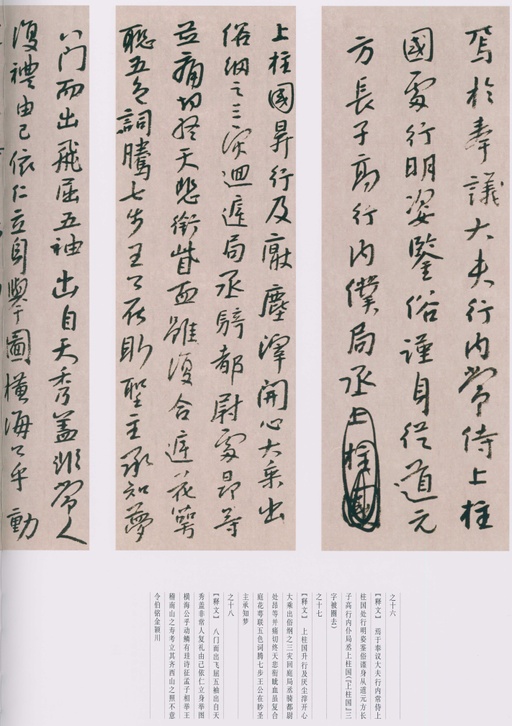 焉於奉議大夫行內常侍上柱
國處行明姿鑒俗謹身從道元
方長子高行內僕局丞上柱國
上柱國昇行及厭塵滓開心大乘出
俗綱之三灾迴庭局丞騎都尉處昂等
並痛切終天悲銜眥血雖復合庭花萼
聯五色詞騰七步王公在即聖主承知夢
八門而出飛屈五袖出自天秀蓋非常人
復禮由己依仁立身舉圖橫海公乎動
之十六
【释文】 焉于奉议大夫行内常侍上
柱国处行明姿鉴俗谨身从道元方长
子高行内仆局丞上柱国(『上柱国』三
字被圈去)
之十七
【释文】 上柱国升行及厌尘滓开心
大乘出俗纲之三灾回庭局丞骑都尉
处昂等并痛切终天悲衔眦血虽复合
庭花萼联五色词腾七步王公在 圣
主承知梦
之十八
【释文】 八门而出飞屈五袖出自天
秀盖非常人复礼由己依仁立身举图
横海公乎动鳞有珪诗征孟子相举王
南山之寿考立其齐西山之照不意
今伯铭金颍川